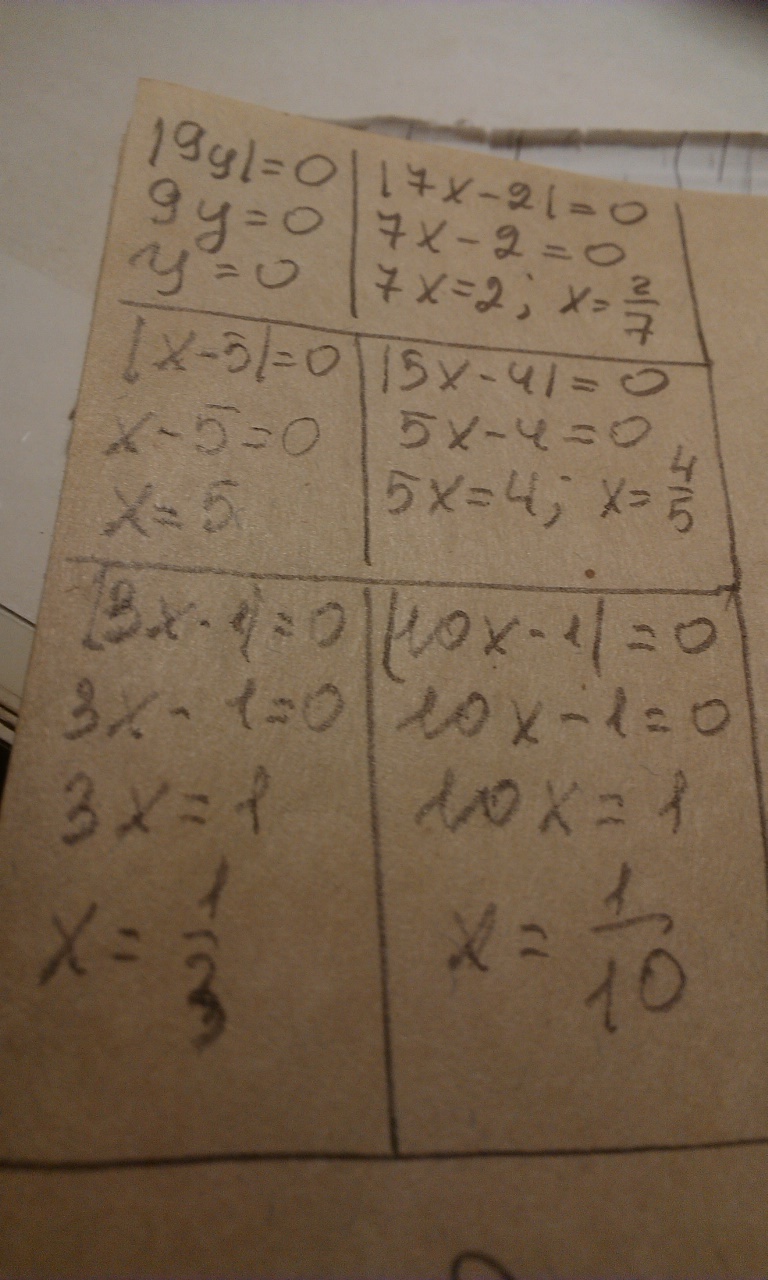 |9y|=0
9y=0
y=0
|7x-2|=0
7x-2=0
7x=2; x=2/7
|x-5|=0
x-5=0
x=5
|5x-4|=0
5x-4=0
5x=4; x=4/5
|3x-1|=0
3x-1=0
3x=1
x=1/3
|10x-1|=0
10x-1=0
10x=1
x=1/10